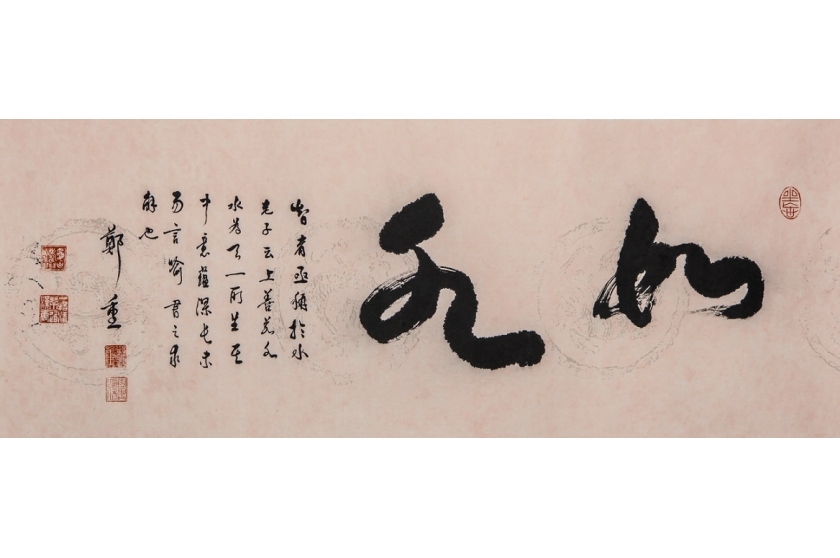 如水
智者亟稱於水
老子云上善若水
水為天一所生其
中意蘊深長未
易言喻書之求
解也
鄭重